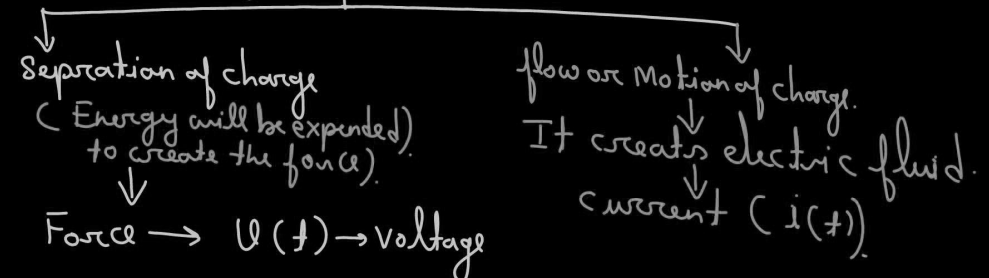 Sepration of charge
( Energy will be expended)
to create the force).
Force → v(t) → voltage
flow or Motion of charge.
It creats electric fluid.
current (i(t)).